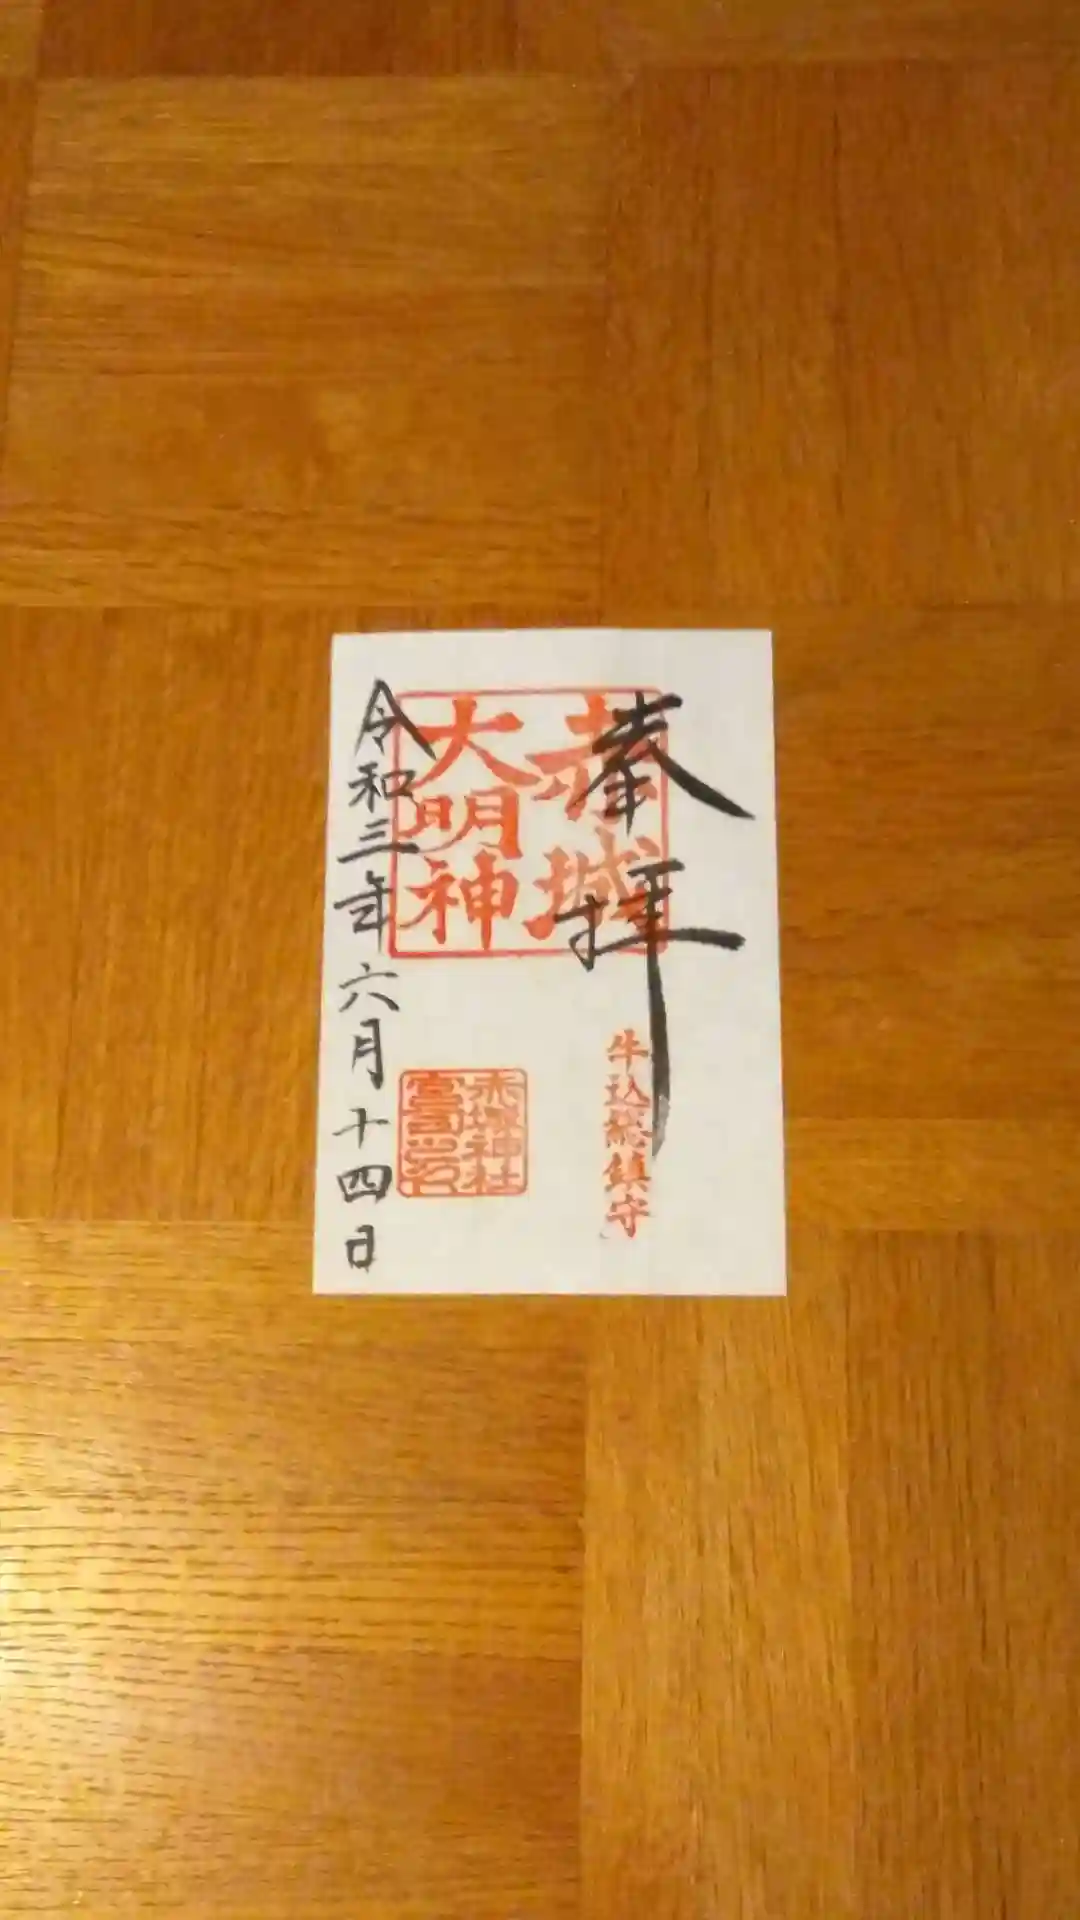 奉拝
赤城
大明神
牛込総鎮守
赤城神社
宮司之印
令和三年六月十四日